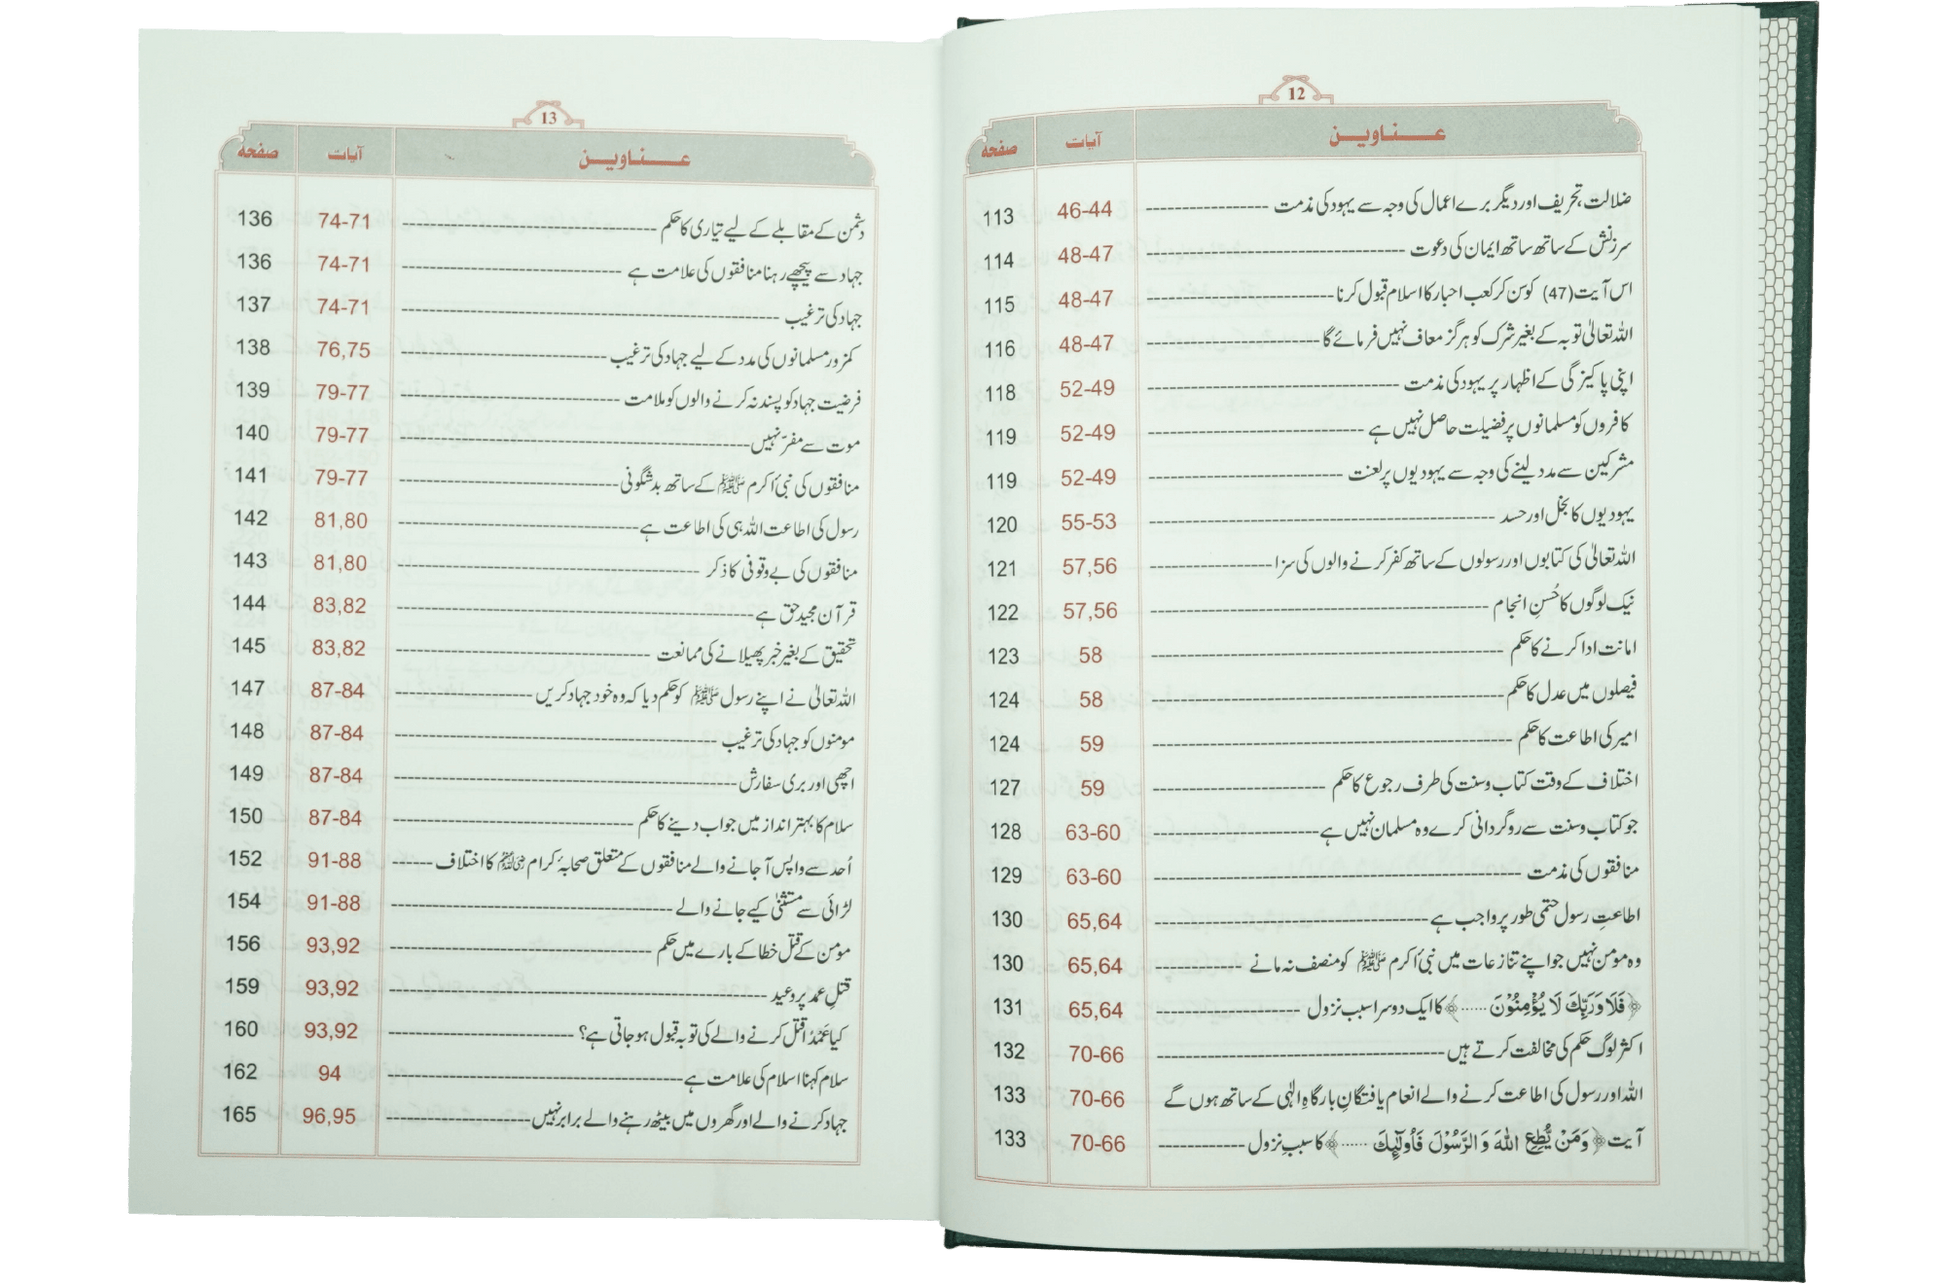 12
عناوین آیات صفحہ
ضلالت، تحریف اور دیگر برے اعمال کی وجہ سے یہود کی مذمت ---------- 46-44 113
سرزنش کے ساتھ ساتھ ایمان کی دعوت ---------- 48-47 114
اس آیت (47) کو سن کر کعب احبار کا اسلام قبول کرنا ---------- 48-47 115
اللہ تعالیٰ توبہ کے بغیر شرک کو ہرگز معاف نہیں فرمائے گا ---------- 48-47 116
اپنی پاکیزگی کے اظہار پر یہود کی مذمت ---------- 52-49 118
کافروں کو مسلمانوں پر فضیلت حاصل نہیں ہے ---------- 52-49 119
مشرکین سے مدد لینے کی وجہ سے یہودیوں پر لعنت ---------- 52-49 119
یہودیوں کا بخل اور حسد ---------- 55-53 120
اللہ تعالیٰ کی کتابوں اور رسولوں کے ساتھ کفر کرنے والوں کی سزا ---------- 57,56 121
نیک لوگوں کا حُسنِ انجام ---------- 57,56 122
امانت ادا کرنے کا حکم ---------- 58 123
فیصلوں میں عدل کا حکم ---------- 58 124
امیر کی اطاعت کا حکم ---------- 59 124
اختلاف کے وقت کتاب و سنت کی طرف رجوع کا حکم ---------- 59 127
جو کتاب و سنت سے روگردانی کرے وہ مسلمان نہیں ہے ---------- 63-60 128
منافقوں کی مذمت ---------- 63-60 129
اطاعتِ رسول حتمی طور پر واجب ہے ---------- 65,64 130
وہ مومن نہیں جو اپنے تنازعات میں نبیٔ اکرم ﷺ کو منصف نہ مانے ---------- 65,64 130
﴿فَلَا وَرَبِّكَ لَا يُؤْمِنُوْنَ ......﴾ کا ایک دوسرا سبب نزول ---------- 65,64 131
اکثر لوگ حکم کی مخالفت کرتے ہیں ---------- 70-66 132
اللہ اور رسول کی اطاعت کرنے والے انعام یافتگانِ بارگاہِ الٰہی کے ساتھ ہوں گے 70-66 133
آیت ﴿وَمَنْ يُّطِعِ اللّٰهَ وَالرَّسُوْلَ فَاُولٰٓئِكَ ......﴾ کا سببِ نزول ---------- 70-66 133
13
عناوین آیات صفحہ
دشمن کے مقابلے کے لیے تیاری کا حکم ---------- 74-71 136
جہاد سے پیچھے رہنا منافقوں کی علامت ہے ---------- 74-71 136
جہاد کی ترغیب ---------- 74-71 137
کمزور مسلمانوں کی مدد کے لیے جہاد کی ترغیب ---------- 76,75 138
فرضیت جہاد کو پسند نہ کرنے والوں کو ملامت ---------- 79-77 139
موت سے مفرّ نہیں ---------- 79-77 140
منافقوں کی نبیٔ اکرم ﷺ کے ساتھ بدشگونی ---------- 79-77 141
رسول کی اطاعت اللہ ہی کی اطاعت ہے ---------- 81,80 142
منافقوں کی بے وقوفی کا ذکر ---------- 81,80 143
قرآن مجید حق ہے ---------- 83,82 144
تحقیق کے بغیر خبر پھیلانے کی ممانعت ---------- 83,82 145
اللہ تعالیٰ نے اپنے رسول ﷺ کو حکم دیا کہ وہ خود جہاد کریں ---------- 87-84 147
مومنوں کو جہاد کی ترغیب ---------- 87-84 148
اچھی اور بری سفارش ---------- 87-84 149
سلام کا بہتر انداز میں جواب دینے کا حکم ---------- 87-84 150
اُحد سے واپس آ جانے والے منافقوں کے متعلق صحابہ کرام کا اختلاف ------ 91-88 152
لڑائی سے مستثنیٰ کیے جانے والے ---------- 91-88 154
مومن کے قتل خطا کے بارے میں حکم ---------- 93,92 156
قتلِ عمد پر وعید ---------- 93,92 159
کیا عَمْدًا قتل کرنے والے کی توبہ قبول ہو جاتی ہے؟ ---------- 93,92 160
سلام کہنا اسلام کی علامت ہے ---------- 94 162
جہاد کرنے والے اور گھروں میں بیٹھ رہنے والے برابر نہیں ---------- 96,95 165